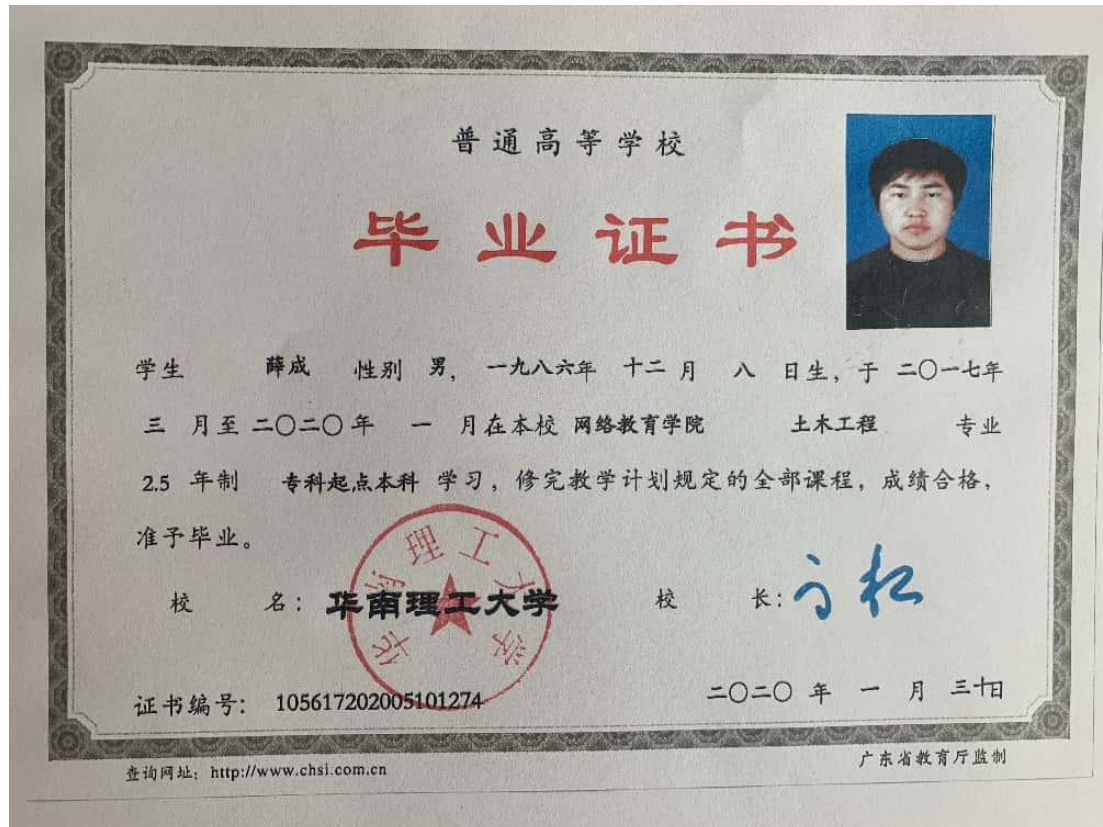 普通高等学校
毕业证书
学生 薛成 性别 男, 一九八六年 十二 月 八 日生, 于 二〇一七年
三 月至 二〇二〇年 一 月在本校 网络教育学院 土木工程 专业
2.5 年制 专科起点本科 学习, 修完教学计划规定的全部课程, 成绩合格,
准予毕业。
校 名: 华南理工大学 校 长:
华南理工大学
证书编号: 105617202005101274 二〇二〇 年 一 月 三十日
查询网址: http://www.chsi.com.cn 广东省教育厅监制